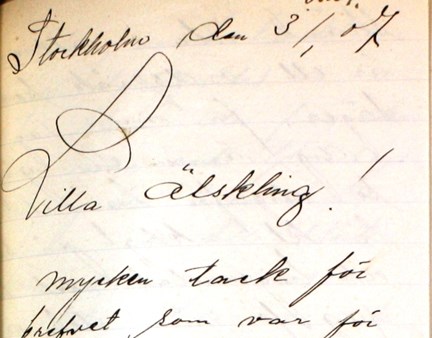 Stockholm den 3/1, 07
Lilla älskling!
mycken tack för
brefvet, som var för